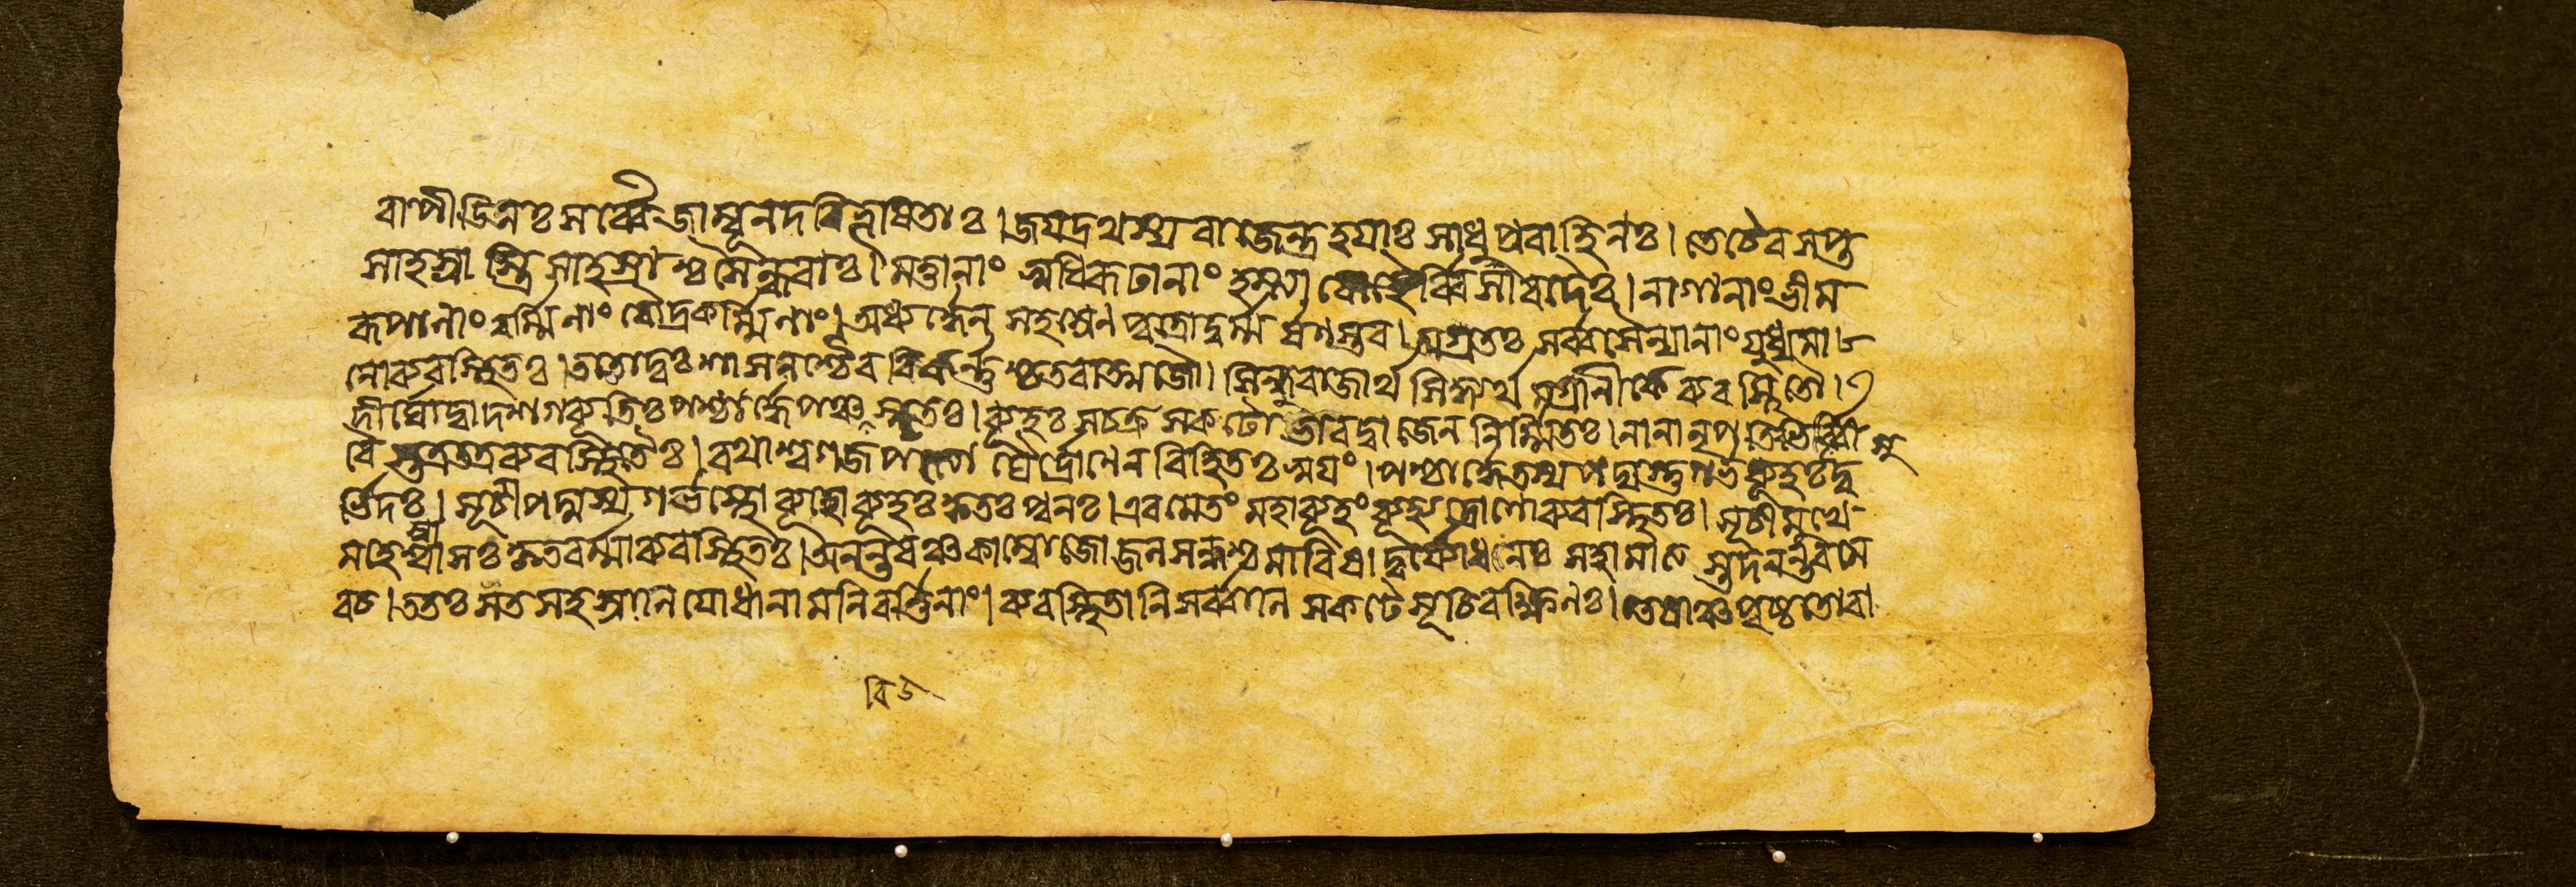 বাপীড়িনঃ সর্ব্বে জাম্বূনদবিভূষিতাঃ। জয়দ্রথস্য রাজেন্দ্র হয়াঃ সাধুপ্রবাহিনঃ। তেচৈব সপ্ত
সাহস্রা স্ত্রিসাহস্রাশ্চ সৈন্ধবাঃ। মত্তানাং অধিরূঢানাং হস্ত্যা রোহৈর্ব্বিসারদৈঃ। নাগানাং ভীম
রূপানাং বর্ম্মিনাং রৌদ্রকর্ম্মিনাং। অধ্যর্দ্ধেন সহস্রেন পুত্রো দুর্ম্মর্ষণস্তব। অগ্রতঃ সর্ব্বসৈন্যানাং যুধ্যমা
নো ব্যবস্থিতঃ। ততো দুঃশাসনশ্চৈব বিকর্ন্নশ্চ তবাত্মজৌ। সিন্ধুরাজার্থ সিদ্ধ্যর্থ মগ্রানীকে ব্যবস্থিতৌ।
দীর্ঘো দ্বাদশগব্যূতিঃ পশ্চার্দ্ধে পঞ্চ বিস্তৃতঃ। ব্যূহঃ সচক্র সকটো ভারদ্বাজেন নির্ম্মিতঃ। নানানৃপতিভির্ব্বী
রৈ স্তত্রতত্র ব্যবস্থিতৈঃ। রথাশ্বগজপত্যো ঘৈর্দ্রোণেন বিহিতঃ স্বয়ং। পশ্চার্দ্ধে তস্য পদ্মস্তু গর্ভব্যূহঃ সুদু
র্ভিদঃ। সূচী পদ্মস্য গর্ভস্থো গূঢো ব্যূহঃ কৃতঃ পুনঃ। এবমেতং মহাব্যূহং ব্যূহ্য দ্রোণো ব্যবস্থিতঃ। সূচীমুখে
মহেষ্বাসঃ কৃতবর্ম্মা ব্যবস্থিতঃ। অনন্তরঞ্চ কাম্বোজো জলসন্ধশ্চ মারিষ। দুর্য্যোধনঃ সহামাত্য স্তদনন্তরমে
বচ। ততঃ সতসহস্রানি যোধানামনিবর্ত্তিনাং। ব্যবস্থিতানি সর্ব্বানি সকটে সূচিরক্ষিনঃ। তেষাঞ্চ পৃষ্ঠতো রা